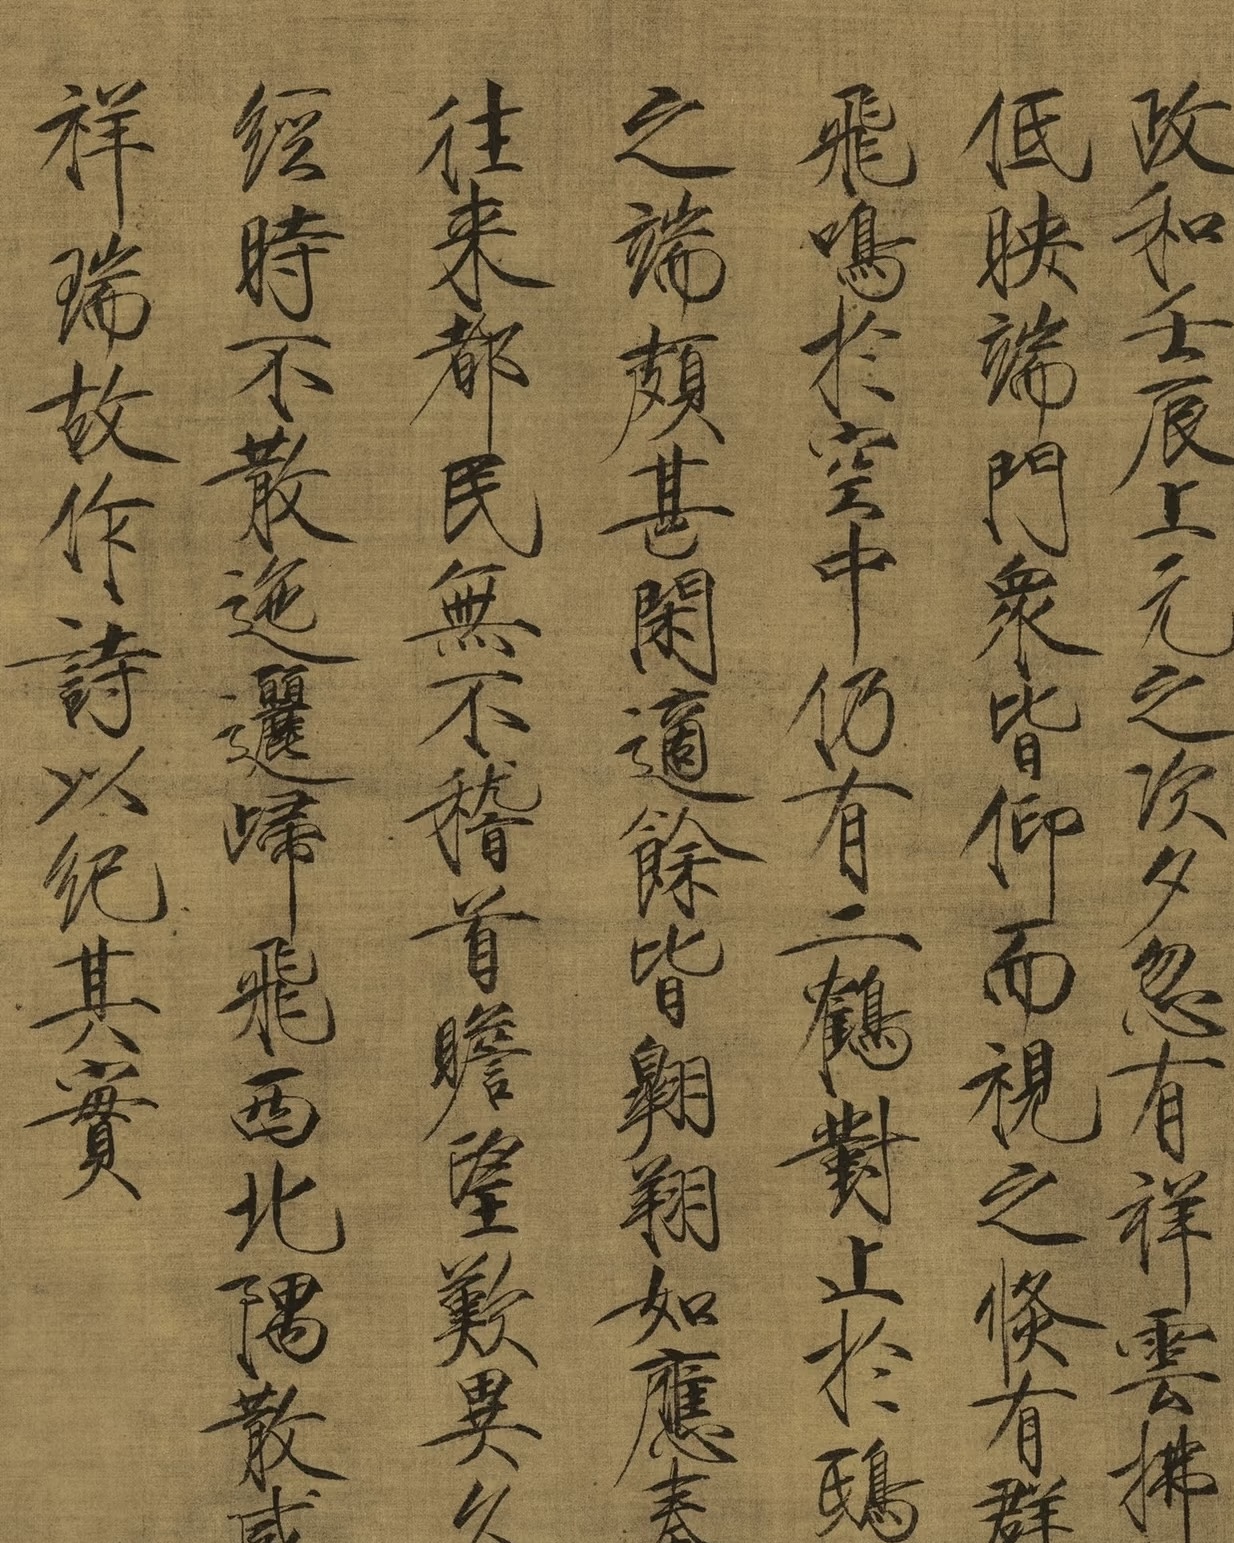 政和壬辰上元之次夕忽有祥雲拂
低映端門衆皆仰而視之倐有群
飛鳴於空中仍有二鶴對止於鴟
之端頗甚閑適餘皆翱翔如應奏
往来都民無不稽首瞻望歎異久
經時不散迤邐歸飛西北隅散感
祥瑞故作詩以紀其實